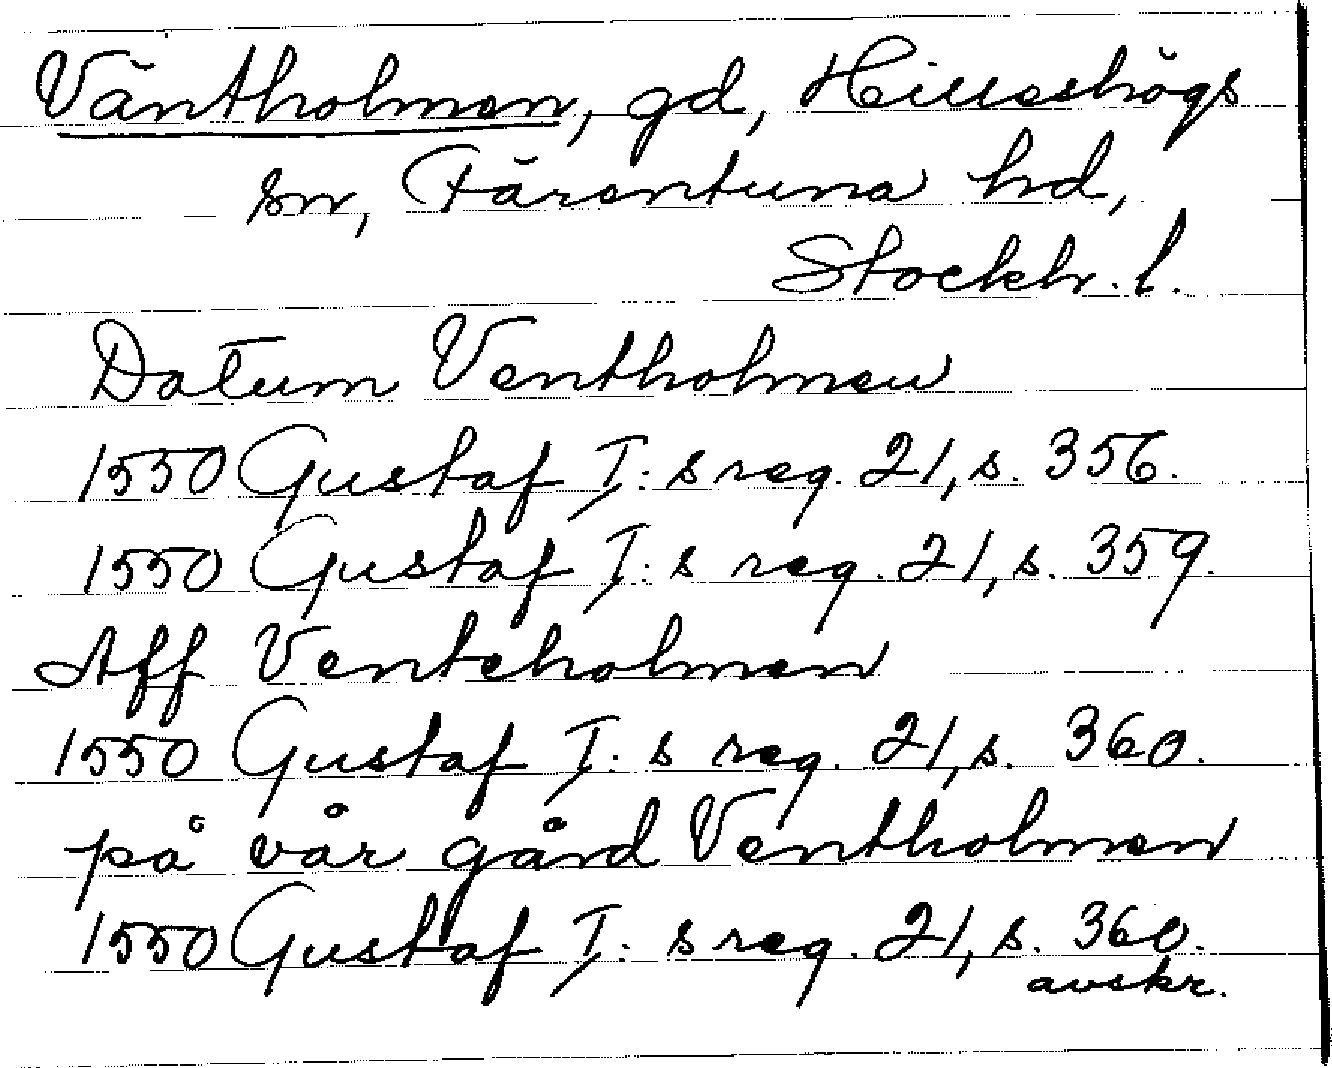 Väntholmen, gd, Hilleshögs
sn, Färentuna hd,
Stockh. l.
Datum Ventholmen
1550 Gustaf I:s reg. 21, s. 356.
1550 Gustaf I:s reg. 21, s. 359.
Aff Venteholmen
1550 Gustaf I:s reg. 21, s. 360.
på vår gård Ventholmen
1550 Gustaf I:s reg. 21, s. 360.
avskr.